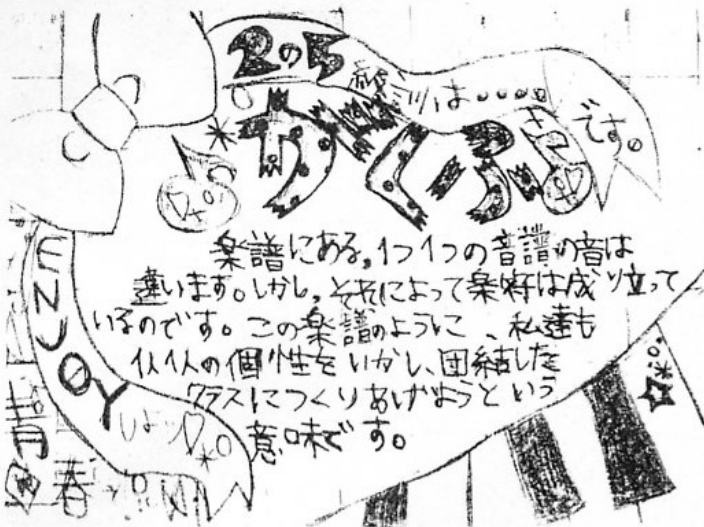 2の5
は....
がくふ
です。
楽譜にある。1つ1つの音譜の音は
違います。しかし、それによって楽譜は成り立って
いるのです。この楽譜のように、私達も
1人1人の個性をいかし、団結した
クラスにつくりあげようという
意味です。
ENJOY
しよっ
青春